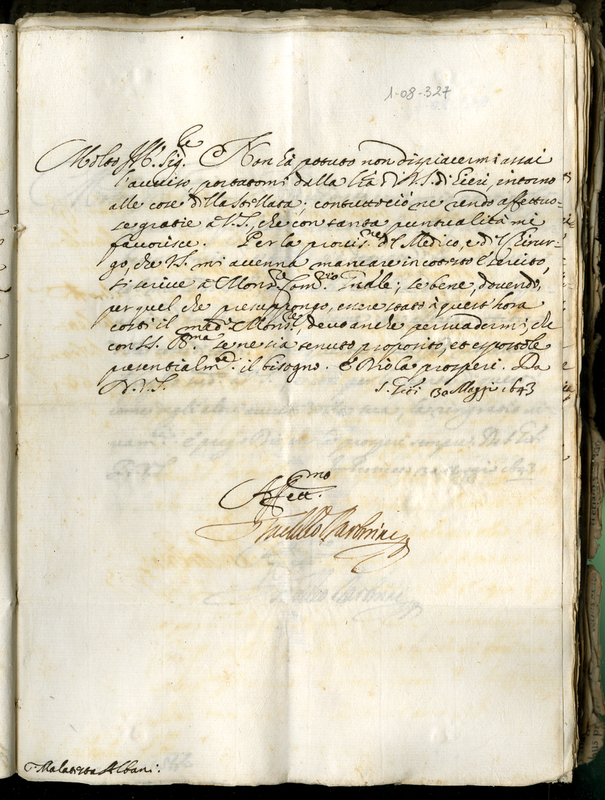 1-08-327
Molto Ill.re Sig.re Non hà potuto non dispiacermi assai
l'auuiso, portatomi dalla l'ra di V.S. di hieri, intorno
alle cose della stellata; contuttociò ne rendo affettuo-
se gratie a V.S., che con tanta puntualità mi
favorisce. Per la prouis.ne del Medico, e del Chirur-
go, che V.S. mi auenna mancare in cotesto seruitio,
si scriue à Mons.r Com.rio ; se bene, douendo,
per quel che presuppongo, essere stato à quest'hora
costì il med.o Mons.re deuo anche persuadermi, che
con S.S. Ill.ma se ne sia tenuto proposito, et espostole
presentialm.te il bisogno. E Dio la prosperi. Da
30 Maggio 1643
V.S.
Aff.mo
Malatesta Albani.